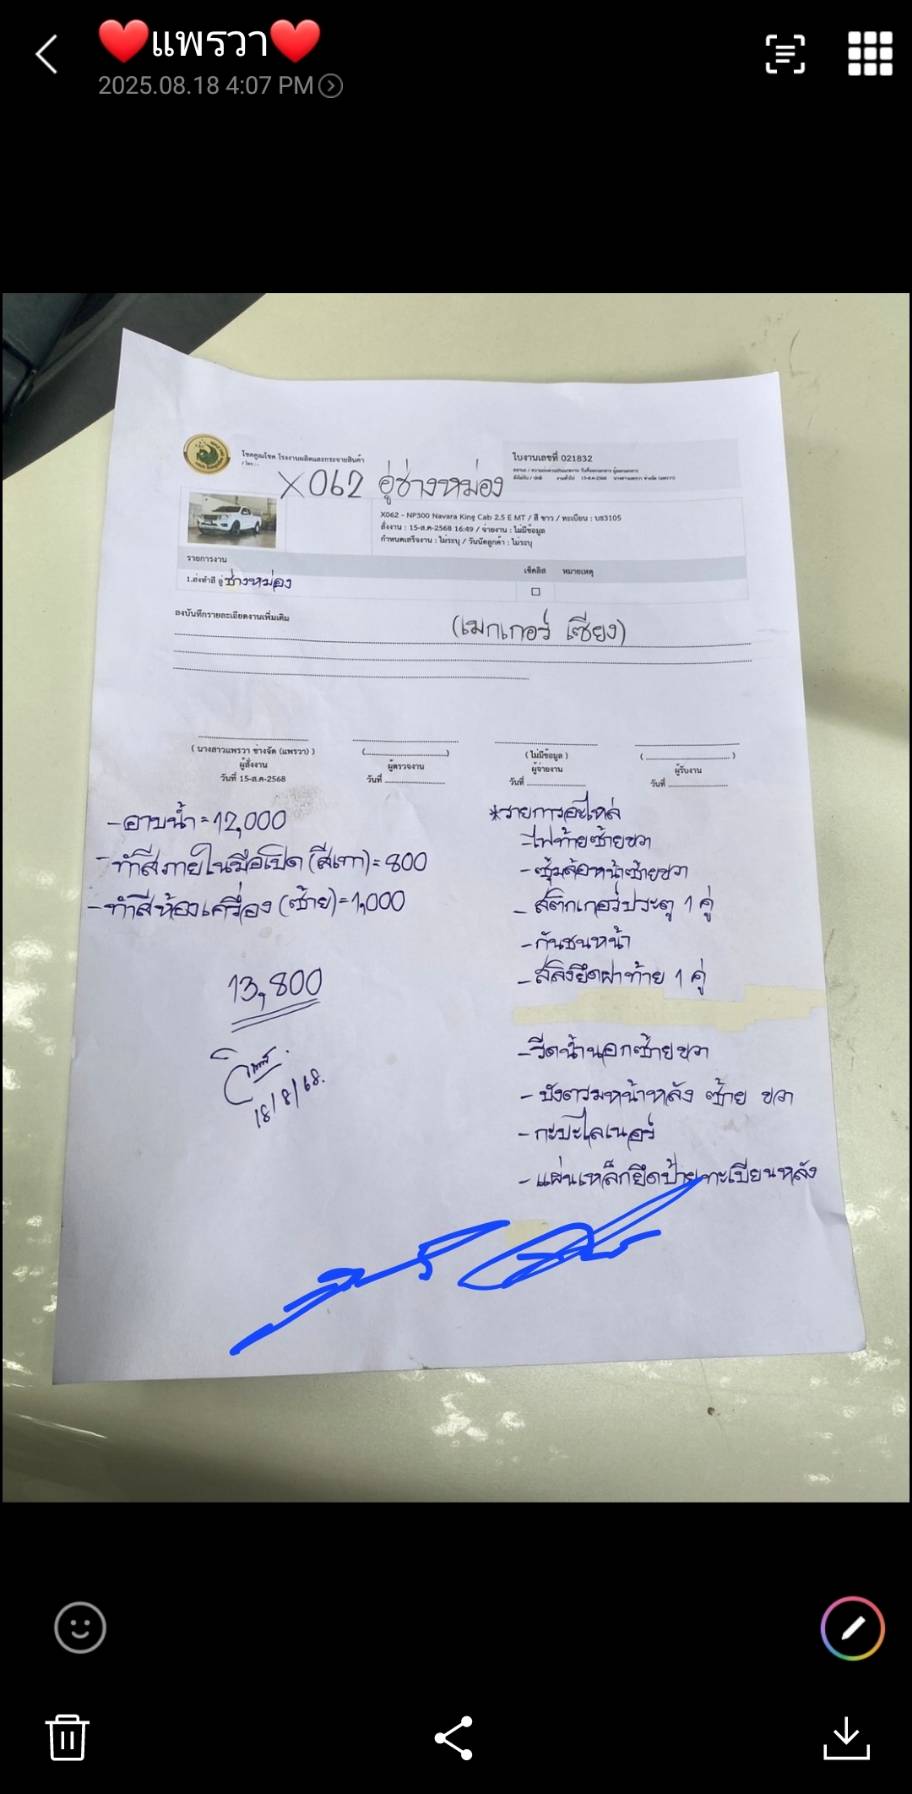 ❤️แพรวา❤️
2025.08.18 4:07 PM
โชคคูณโชค โรงงานผลิตและกระจายสินค้า
ใบงานเลขที่ 021832
X062 อู่ช่างหม่อง
X062 - NP300 Navara King Cab 2.5 E MT / สี ขาว / ทะเบียน : บร3105
สั่งงาน : 15-ส.ค-2568 16:49 / จ่ายงาน : ไม่มีข้อมูล
กำหนดเสร็จงาน : ไม่ระบุ / วันนัดลูกค้า : ไม่ระบุ
รายการงาน
เช็คลิส หมายเหตุ
1.ส่งทำสี อู่ช่างหม่อง
ลงบันทึกรายละเอียดงานเพิ่มเติม
(เมกเกอร์ เซียง)
( นางสาวแพรวา ช่างจัด (แพรวา) )
ผู้สั่งงาน
วันที่ 15-ส.ค-2568
ผู้ตรวจงาน
วันที่
( ไม่มีข้อมูล )
ผู้จ่ายงาน
วันที่
ผู้รับงาน
วันที่
-อาบน้ำ=12,000
-ทำสีภายในมือเปิด(สีเทา)=800
-ทำสีห้องเครื่อง(ซ้าย)=1,000
13,800
18/8/68.
*รายการอะไหล่
-ไฟท้ายซ้ายขวา
-ซุ้มล้อหน้าซ้ายขวา
-สติกเกอร์ประตู 1 คู่
-กันชนหน้า
-สลิงยึดฝาท้าย 1 คู่
-รีดน้ำนอกซ้ายขวา
-บังตรมหน้าหลัง ซ้าย ขวา
-กะบะไลเนอร์
-แผ่นเหล็กยึดป้ายทะเบียนหลัง